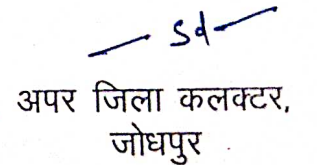 — Sd —
अपर जिला कलक्टर,
जोधपुर